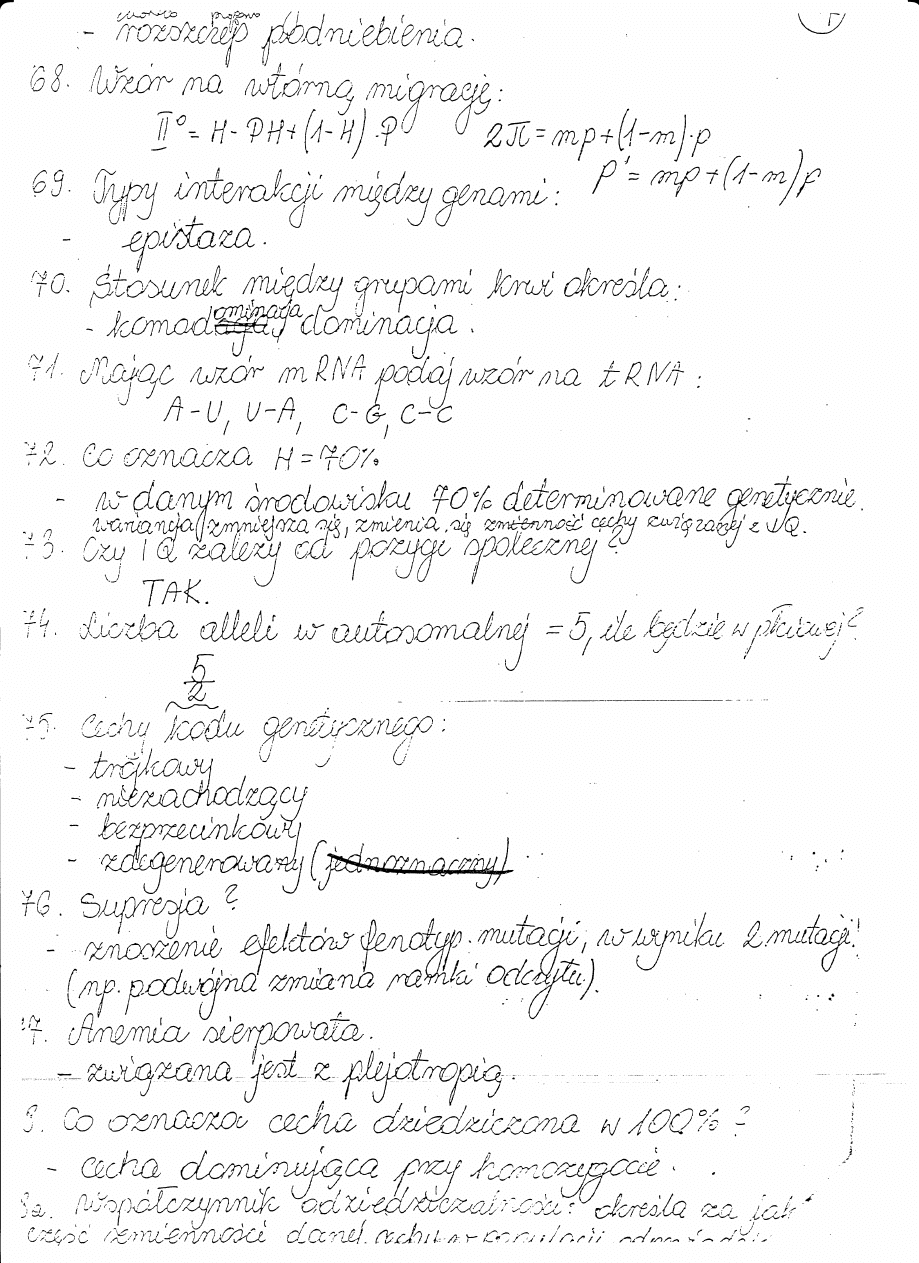 - rozszczep podniebienia.
68. Wzór na wtórną migrację:
II° = H - PH + (1-H) · P 2Π = mp + (1-m)·p
p' = mp + (1-m)p
69. Typy interakcji między genami:
- epistaza.
70. Stosunek między grupami krwi określa:
- komodominacja, dominacja.
71. Mając wzór mRNA podaj wzór na tRNA:
A-U, U-A, C-G, C-C
72. Co oznacza H = 70%
- w danym środowisku 70% determinowane genetycznie.
wariancja zmniejsza się, zmienia się zmienność cechy związanej z IQ.
73. Czy IQ zależy od pozycji społecznej?
TAK.
74. Liczba alleli w autosomalnej = 5, ile będzie w płciowej?
5/2
75. Cechy kodu genetycznego:
- trójkowy
- niezachodzący
- bezprzecinkowy
- zdegenerowany (jednoznaczny)
76. Supresja?
- znoszenie efektów fenotyp. mutacji, w wyniku 2 mutacji!
(np. podwójna zmiana ramki odczytu).
7. Anemia sierpowata.
- związana jest z plejotropią.
Co oznacza cecha dziedziczona w 100%?
- cecha dominująca przy homozygocie.
współczynnik odziedziczalności: określa za jak
część zmienności danej cechy w populacji